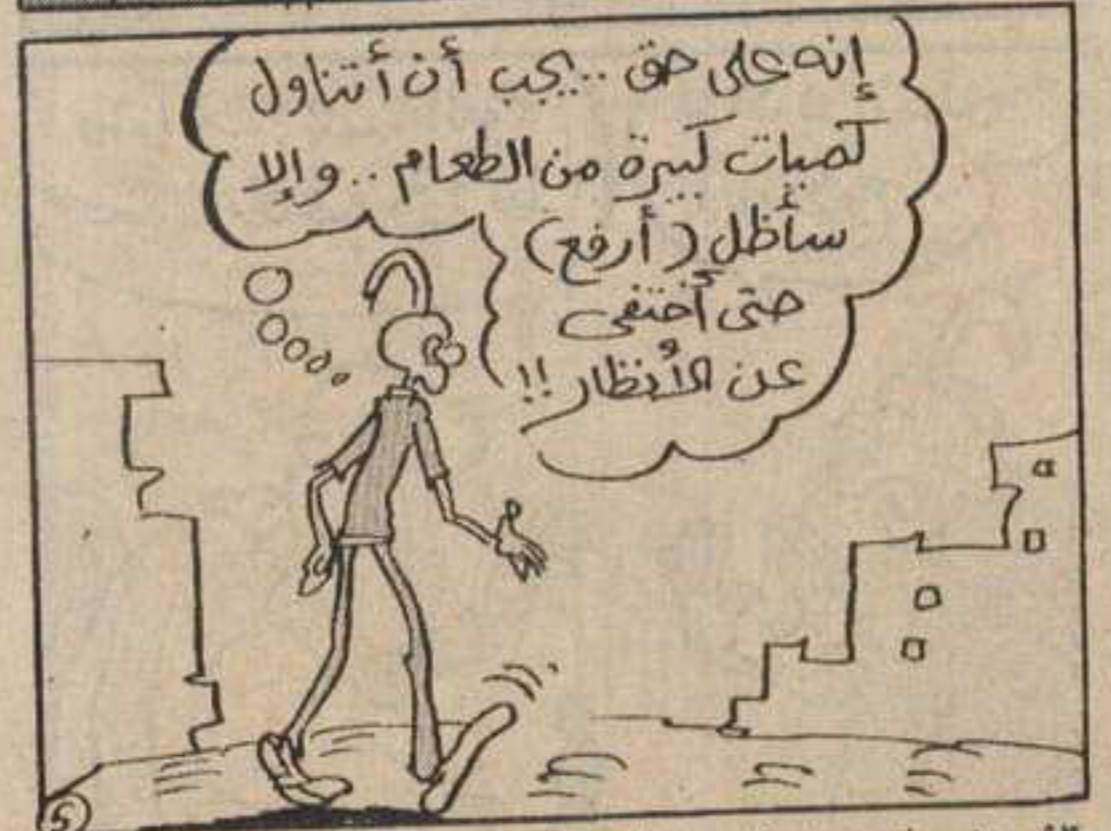 إنه على حق .. يجب أن أتناول
كميات كبيرة من الطعام .. وإلا
سأظل (أرفع)
حتى أختفى
عن الأنظار !!